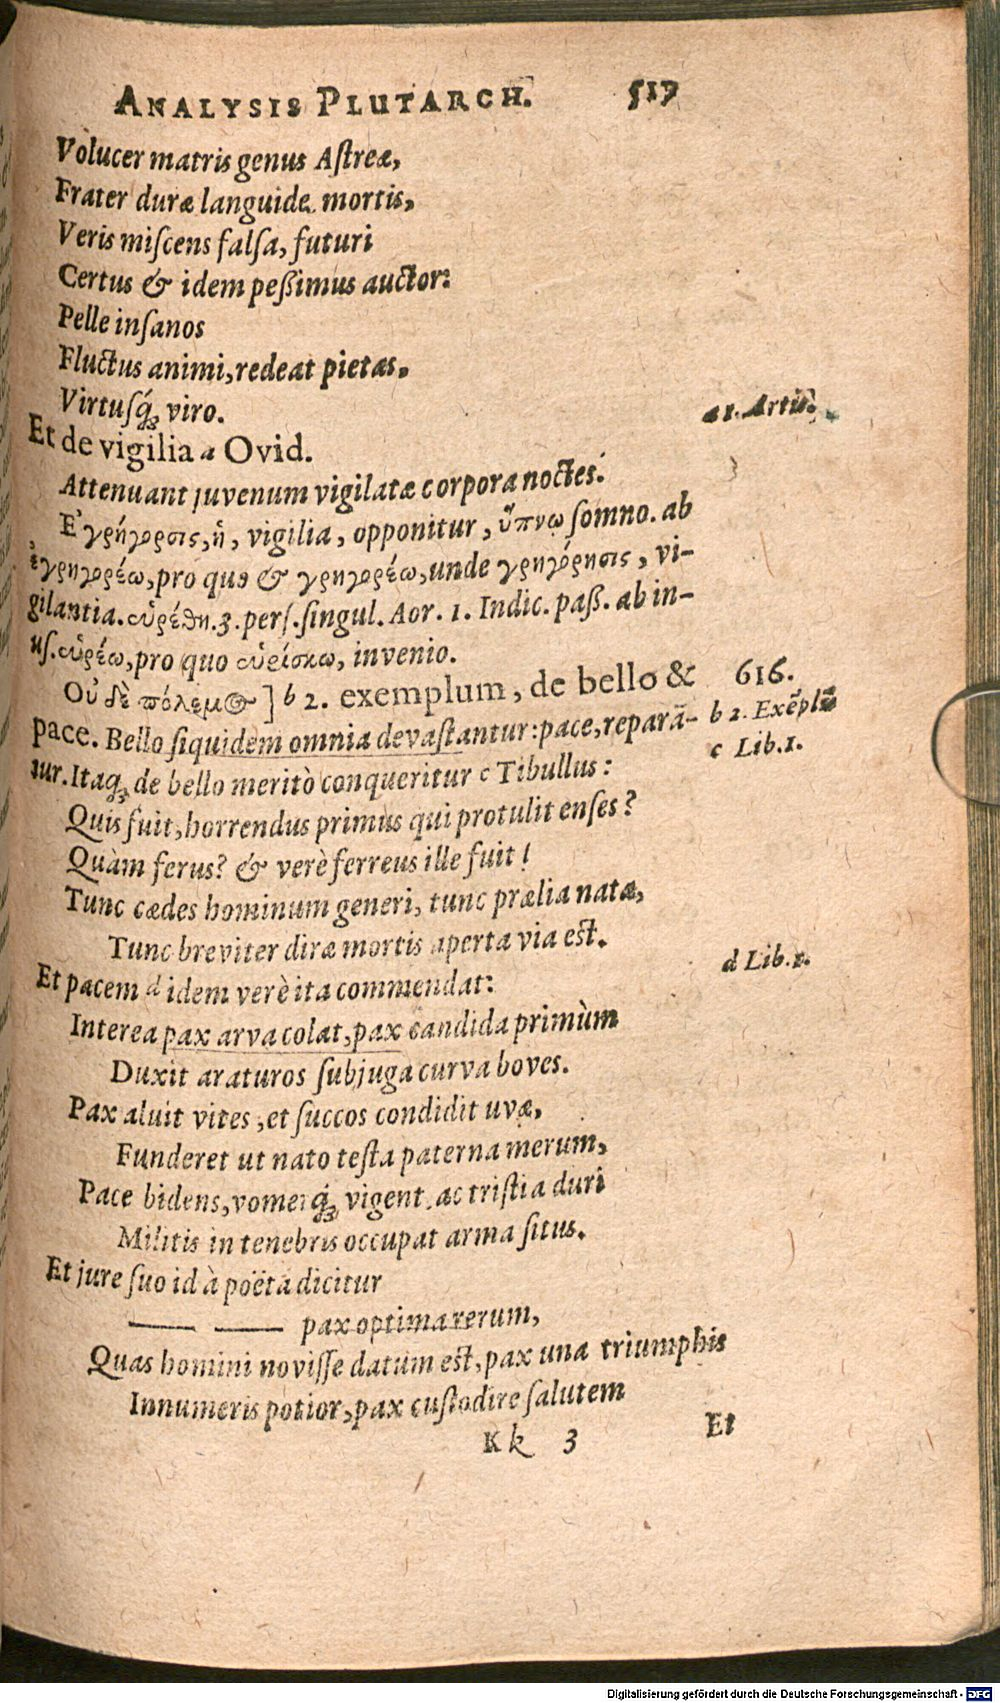 ANALYSIS PLUTARCH. 517
Volucer matris genus Aſtreæ,
Frater duræ languide mortis,
Veris miſcens falſa, futuri
Certus & idem peßimus auctor:
Pelle inſanos
Fluctus animi, redeat pietas.
Virtuſq́ꝫ viro.
Et de vigilia a Ovid.
a 1. Artis.
Attenuant juvenum vigilatæ corpora noctes.
Ἐγρήγορσις, ἡ, vigilia, opponitur, ὕπνῳ ſomno. ab
ἐγρηγορέω, pro quo & γρηγορέω, unde γρηγόρησις, vi-
gilantia. εὑρέθη. 3. perſ. ſingul. Aor. 1. Indic. paß. ab in-
uſ. εὑρέω, pro quo εὑρίσκω, invenio.
Οὐ δὲ πόλεμος] b 2. exemplum, de bello &
616.
pace. Bello ſiquidem omnia devaſtantur: pace, reparã-
b 2. Exẽplũ
tur. Itaqꝫ de bello meritò conqueritur c Tibullus:
c Lib. 1.
Quis fuit, horrendus primus qui protulit enſes?
Quàm ferus? & verè ferreus ille fuit!
Tunc cædes hominum generi, tunc prælia natæ,
Tunc breviter diræ mortis aperta via eſt.
Et pacem d idem verè ita commendat:
d Lib. 1.
Interea pax arva colat, pax candida primùm
Duxit araturos ſub juga curva boves.
Pax aluit vites, et ſuccos condidit uvæ,
Funderet ut nato teſta paterna merum,
Pace bidens, vomerq́ꝫ vigent, ac triſtia duri
Militis in tenebris occupat arma ſitus.
Et jure ſuo id à poëta dicitur
—— —— pax optima rerum,
Quas homini noviſſe datum eſt, pax una triumphis
Innumeris potior, pax cuſtodire ſalutem
Kk 3 Et
Digitalisierung gefördert durch die Deutsche Forschungsgemeinschaft - DFG